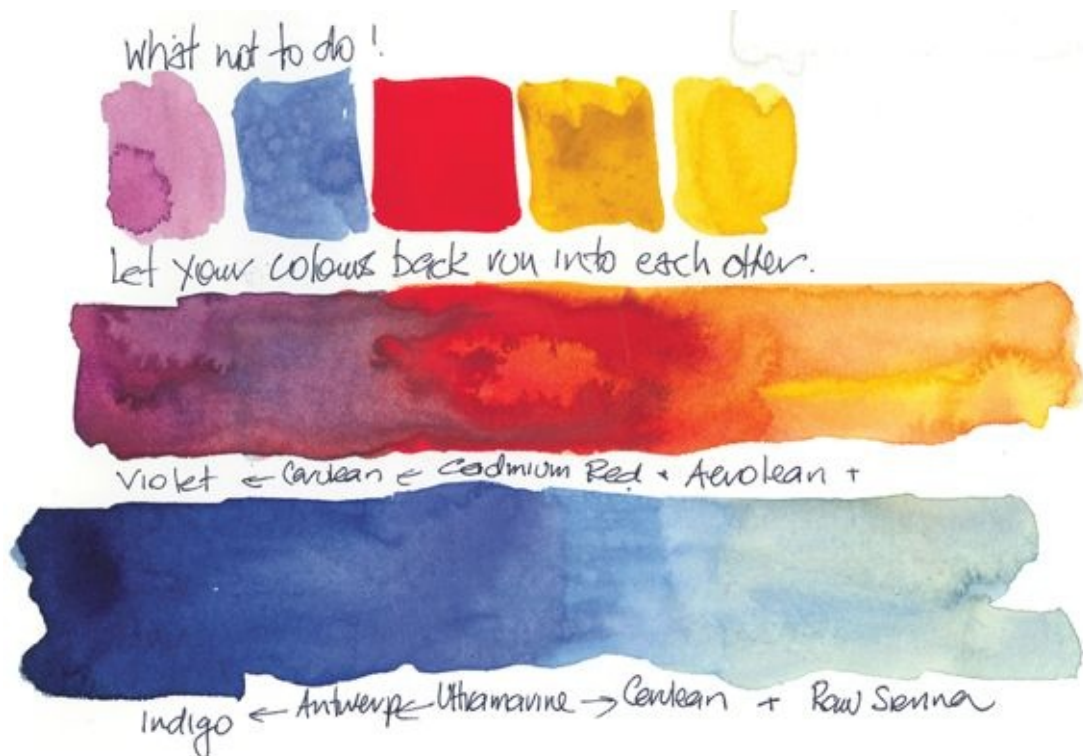 What not to do!
Let your colours back run into each other.
Violet ← Cerulean ← Cadmium Red + Aerolean +
Indigo ← Antwerp ← Ultramarine → Cerulean + Raw Sienna